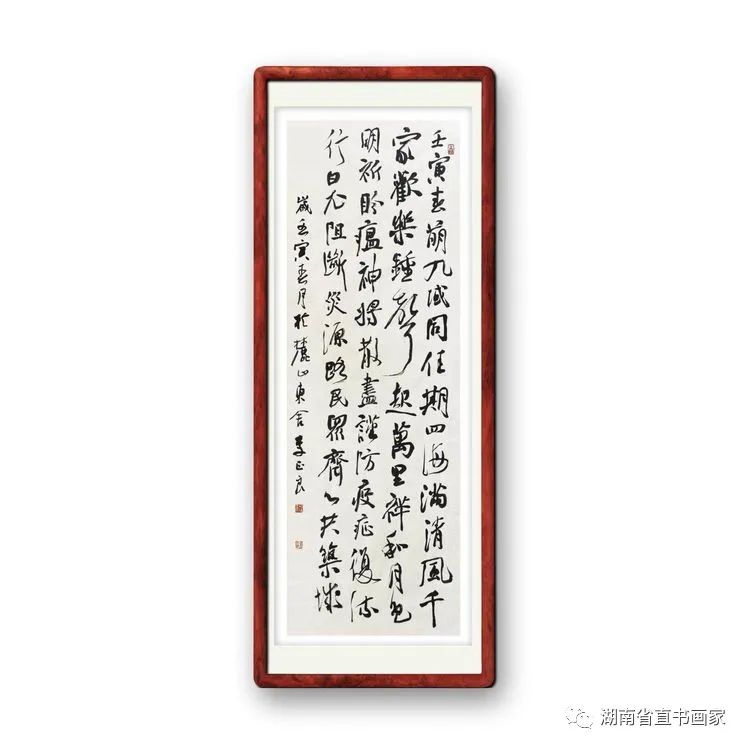 壬寅春萌九域同佳期四海滿清風千
家歡樂鍾聲起萬里祥和月色
明祈盼瘟神將散盡謹防疫症復流
行日阻斷災源路民眾齊心共築
歲壬寅春月於麓山東舍李正良
湖南省直书画家